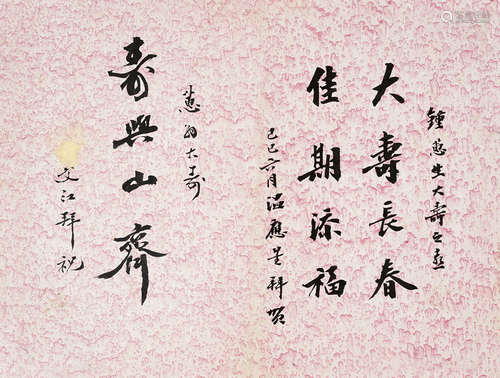 鍾惠生大壽之慶
大壽長春
佳期添福
己巳六月沼應呈拜賀
蕙翁大壽
壽與山齊
文江拜祝